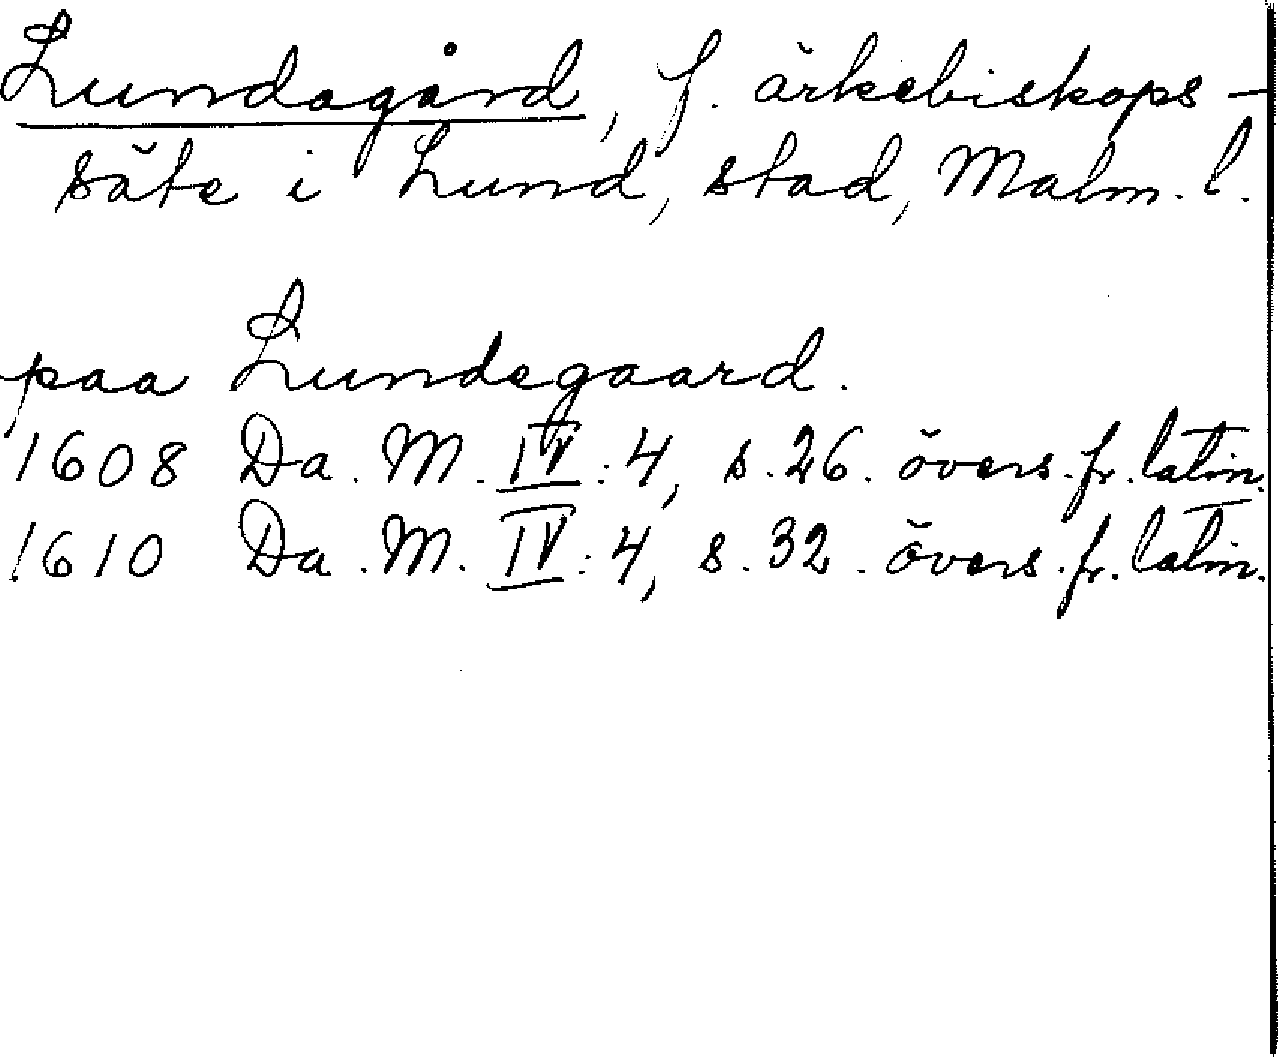 Lundagård, f. ärkebiskops-
säte i Lund, stad, Malm. l.
paa Lundegaard.
1608 Da. M. IV: 4, s. 26. övers. fr. latin.
1610 Da. M. IV: 4, s. 32. övers. fr. latin.